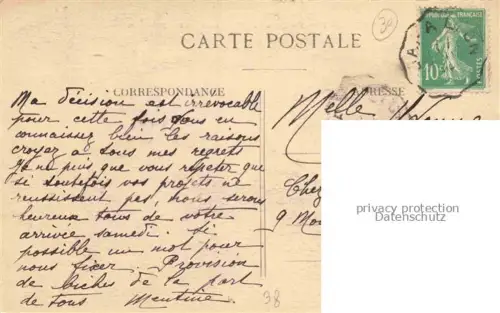 30
CARTE POSTALE
RÉPUBLIQUE FRANÇAISE
10c
POSTES
CORRESPONDANCE
ADRESSE
Ma décision est irrévocable
pour cette fois vous en
connaissez bien les raisons
croyez à tous mes regrets
Je ne puis que vous répéter que
si toutefois vos projets ne
réussissent pas, nous serons
heureux tous de votre
arrivée samedi. Si
possible un mot pour
nous fixer. Provision
de biches de la part
de tous Mentine
Melle
Chez
9
38
privacy protection
Datenschutz